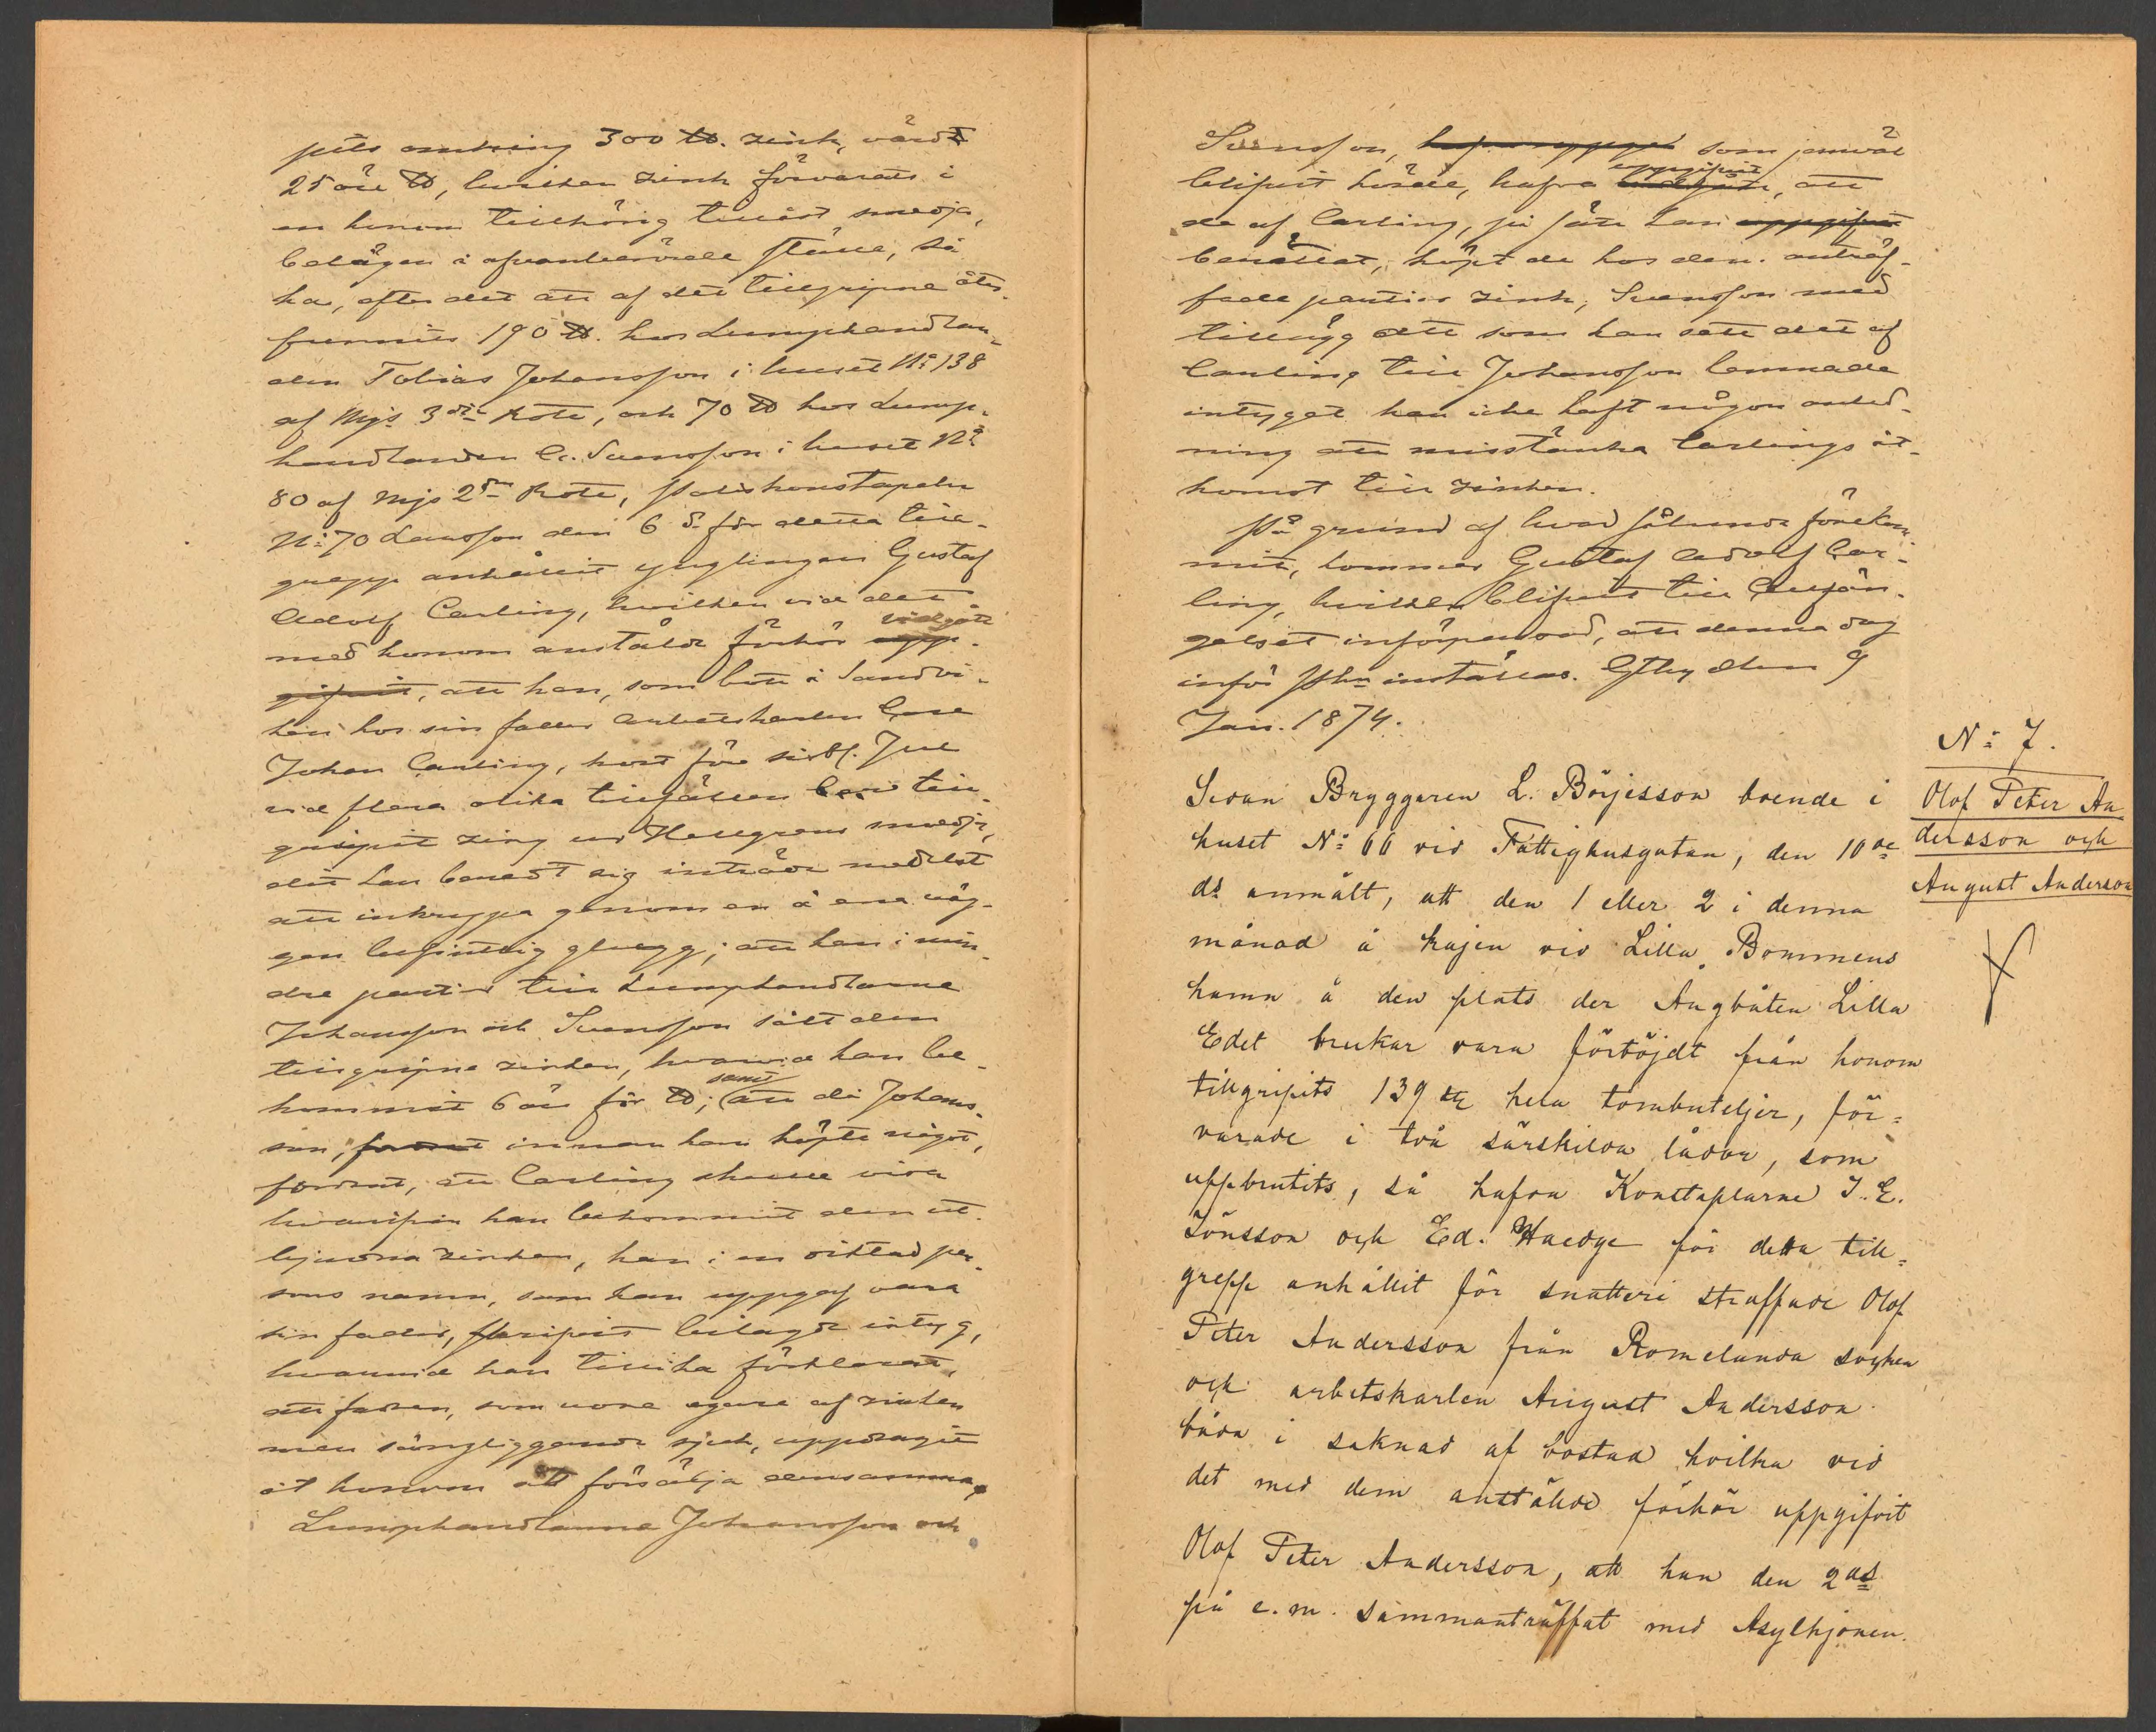 pits omkring 300 ℔. zink, värdt
25 öre ℔, hvilken zink förvarats i
en honom tillhörig tillåst smedja,
belägen i ofvanberörde ställe, så
ha, efter det att af det tillgripne åter-
funnits 190 ℔. hos Lumphandlan-
den Tobias Johansson i huset No 138
af Mjs 3die Rote, och 70 ℔ hos Lump-
handlanden C. Svensson i huset No
80 af Mjs 2dra Rote, Poliskonstapeln
No 70 Larsson den 6 ds för detta till-
grepp anhållit ynglingen Gustaf
Adolf Carling, hvilken vid det
med honom anstälde förhör vidgått
, att han, som bott i Sandvi-
ken hos sin fader Arbetskarlen Carl
Johan Carling, kort före sistl. Jul
vid flera olika tillfällen till-
gripit zing ur Hellgrens smedja,
ditt han beredt sig inträde medelst
att inkrypa genom en å ena väg-
gen befintlig glugg; att han i min-
dre partier till Lumphandlarne
Johansson och Svensson sålt den
tillgripne zinken, hvarvid han be-
kommit 6 öre för ℔; samt att då Johans-
son, innan han köpte något,
fordrat, att Carling skulle visa
hvarifrån han bekommit den ut-
bjudna zinken, han i en diktad per-
sons namn, som han uppgaf vara
sin fader, skrifvit bilagde intyg,
hvarvid han tillika förklarat,
att fadren, som vore egare af zinken
men sängliggande sjuk, uppdragit
åt honom att försälja densamma.
Lumphandlarne Johansson och
Svensson, som jemväl
blifvit hörde, hafva uppgifvit, att
de af Carling, på sätt han
berättat, köpt de hos dem anträf-
fade partier zink, Svensson med
tillägg att som han sett det af
Carling till Johansson lemnade
intyget han icke haft någon anled-
ning att misstänka Carlings åt-
komst till zinken.
På grund af hvad sålunda förekom-
mit, kommer Gustaf Adolf Car-
ling, hvilken blifvit till Cellfän-
gelset införpassad, att denna dag
inför PKn inställas. Gtbg den 9
Jan. 1874.
No 7.
Olof Peter An-
dersson och
August Anderson
Sedan Bryggaren L. Börjesson boende i
huset No 66 vid Fattighusgatan, den 10de
ds anmält, att den 1 eller 2 i denna
månad å kajen vid Lilla Bommens
hamn å den plats der Ångbåten Lilla
Edet brukar vara förtöjdt från honom
tillgripits 139 st hela tombuteljer, för=
varade i två särskilda lådor, som
uppbrutits, så hafva Konstaplarne J. E.
Jönsson och Ed. Haedge för detta till=
grepp anhållit för snatteri straffade Olof
Peter Andersson från Romelanda socken
och arbetskarlen August Andersson
båda i saknad af bostad hvilka vid
det med dem anställde förhör uppgifvit
Olof Peter Andersson, att han den 2 ds
på e.m. sammanträffat med Asylhjonen